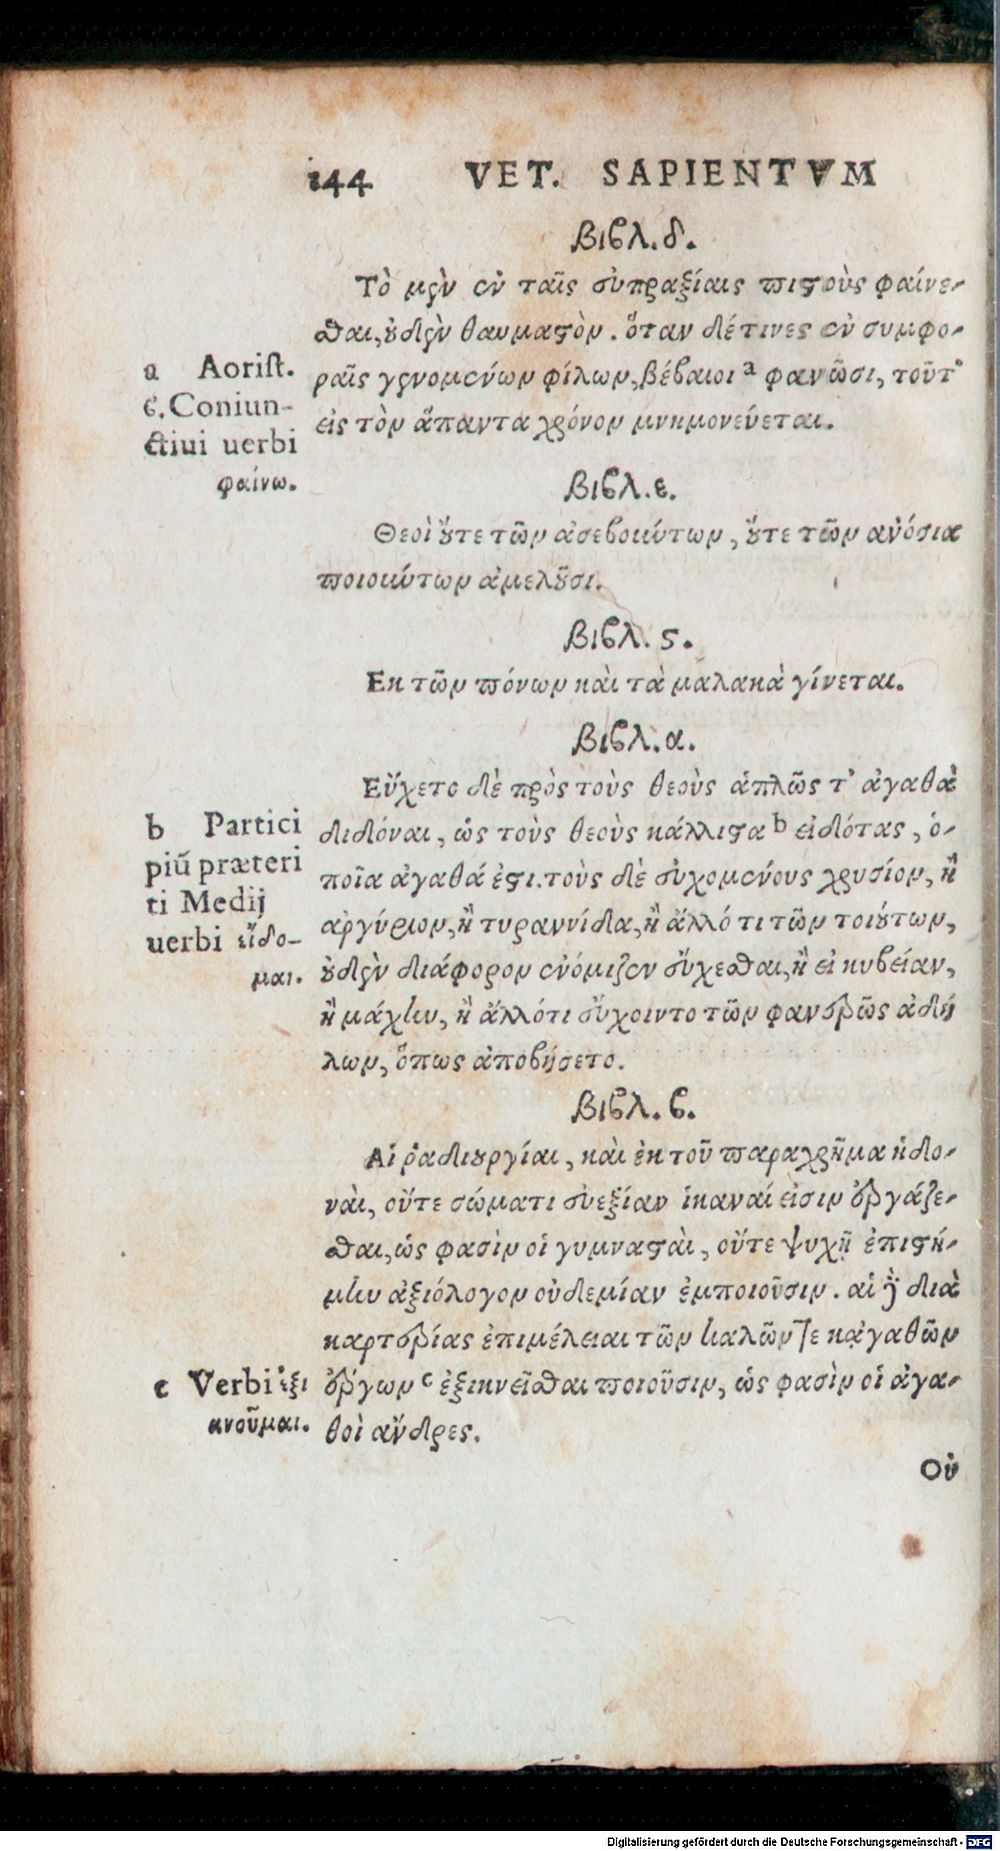 144 VET. SAPIENTVM
Βιβλ. δ.
Τὸ μὲν ἐν ταῖς εὐπραξίαις πιστοὺς φαίνε-
σθαι, οὐδὲν θαυμαστὸν. ὅταν δέ τινες ἐν συμφο-
ραῖς γενομένων φίλων, βέβαιοι a φανῶσι, τοῦτ'
εἰς τὸν ἅπαντα χρόνον μνημονεύεται.
a Aorist.
6. Coniun-
ctiui uerbi
φαίνω.
Βιβλ. ε.
Θεοὶ οὔτε τῶν ἀσεβούντων, οὔτε τῶν ἀνόσια
ποιούντων ἀμελοῦσι.
Βιβλ. ς.
Εκ τῶν πόνων καὶ τὰ μαλακὰ γίνεται.
Βιβλ. α.
Εὔχετο δὲ πρὸς τοὺς θεοὺς ἁπλῶς τ' ἀγαθὰ
διδόναι, ὡς τοὺς θεοὺς κάλλιστα b εἰδότας, ὁ-
ποῖα ἀγαθά ἐστι. τοὺς δὲ εὐχομένους χρυσίον, ἢ
ἀργύριον, ἢ τυραννίδα, ἢ ἄλλό τι τῶν τοιούτων,
οὐδὲν διάφορον ἐνόμιζεν εὔχεσθαι, ἢ εἰ κυβείαν,
ἢ μάχην, ἢ ἄλλότι εὔχοιντο τῶν φανερῶς ἀδή
λων, ὅπως ἀποβήσετο.
b Partici
piũ præteri
ti Medij
uerbi εἴδο-
μαι.
Βιβλ. β.
Αἱ ῥαδιουργίαι, καὶ ἐκ τοῦ παραχρῆμα ἡδο-
ναὶ, οὔτε σώματι εὐεξίαν ἱκαναί εἰσιν ἐργάζε-
σθαι, ὡς φασὶν οἱ γυμνασταὶ, οὔτε ψυχῇ ἐπιστή-
μην ἀξιόλογον οὐδεμίαν ἐμποιοῦσιν. αἱ δὲ διὰ
καρτερίας ἐπιμέλειαι τῶν καλῶν τε κἀγαθῶν
ἔργων c ἐξικνεῖσθαι ποιοῦσιν, ὡς φασὶν οἱ ἀγα-
θοὶ ἄνδρες.
c Verbi ἐξι
κνοῦμαι.
Οὐ
Digitalisierung gefördert durch die Deutsche Forschungsgemeinschaft - DFG